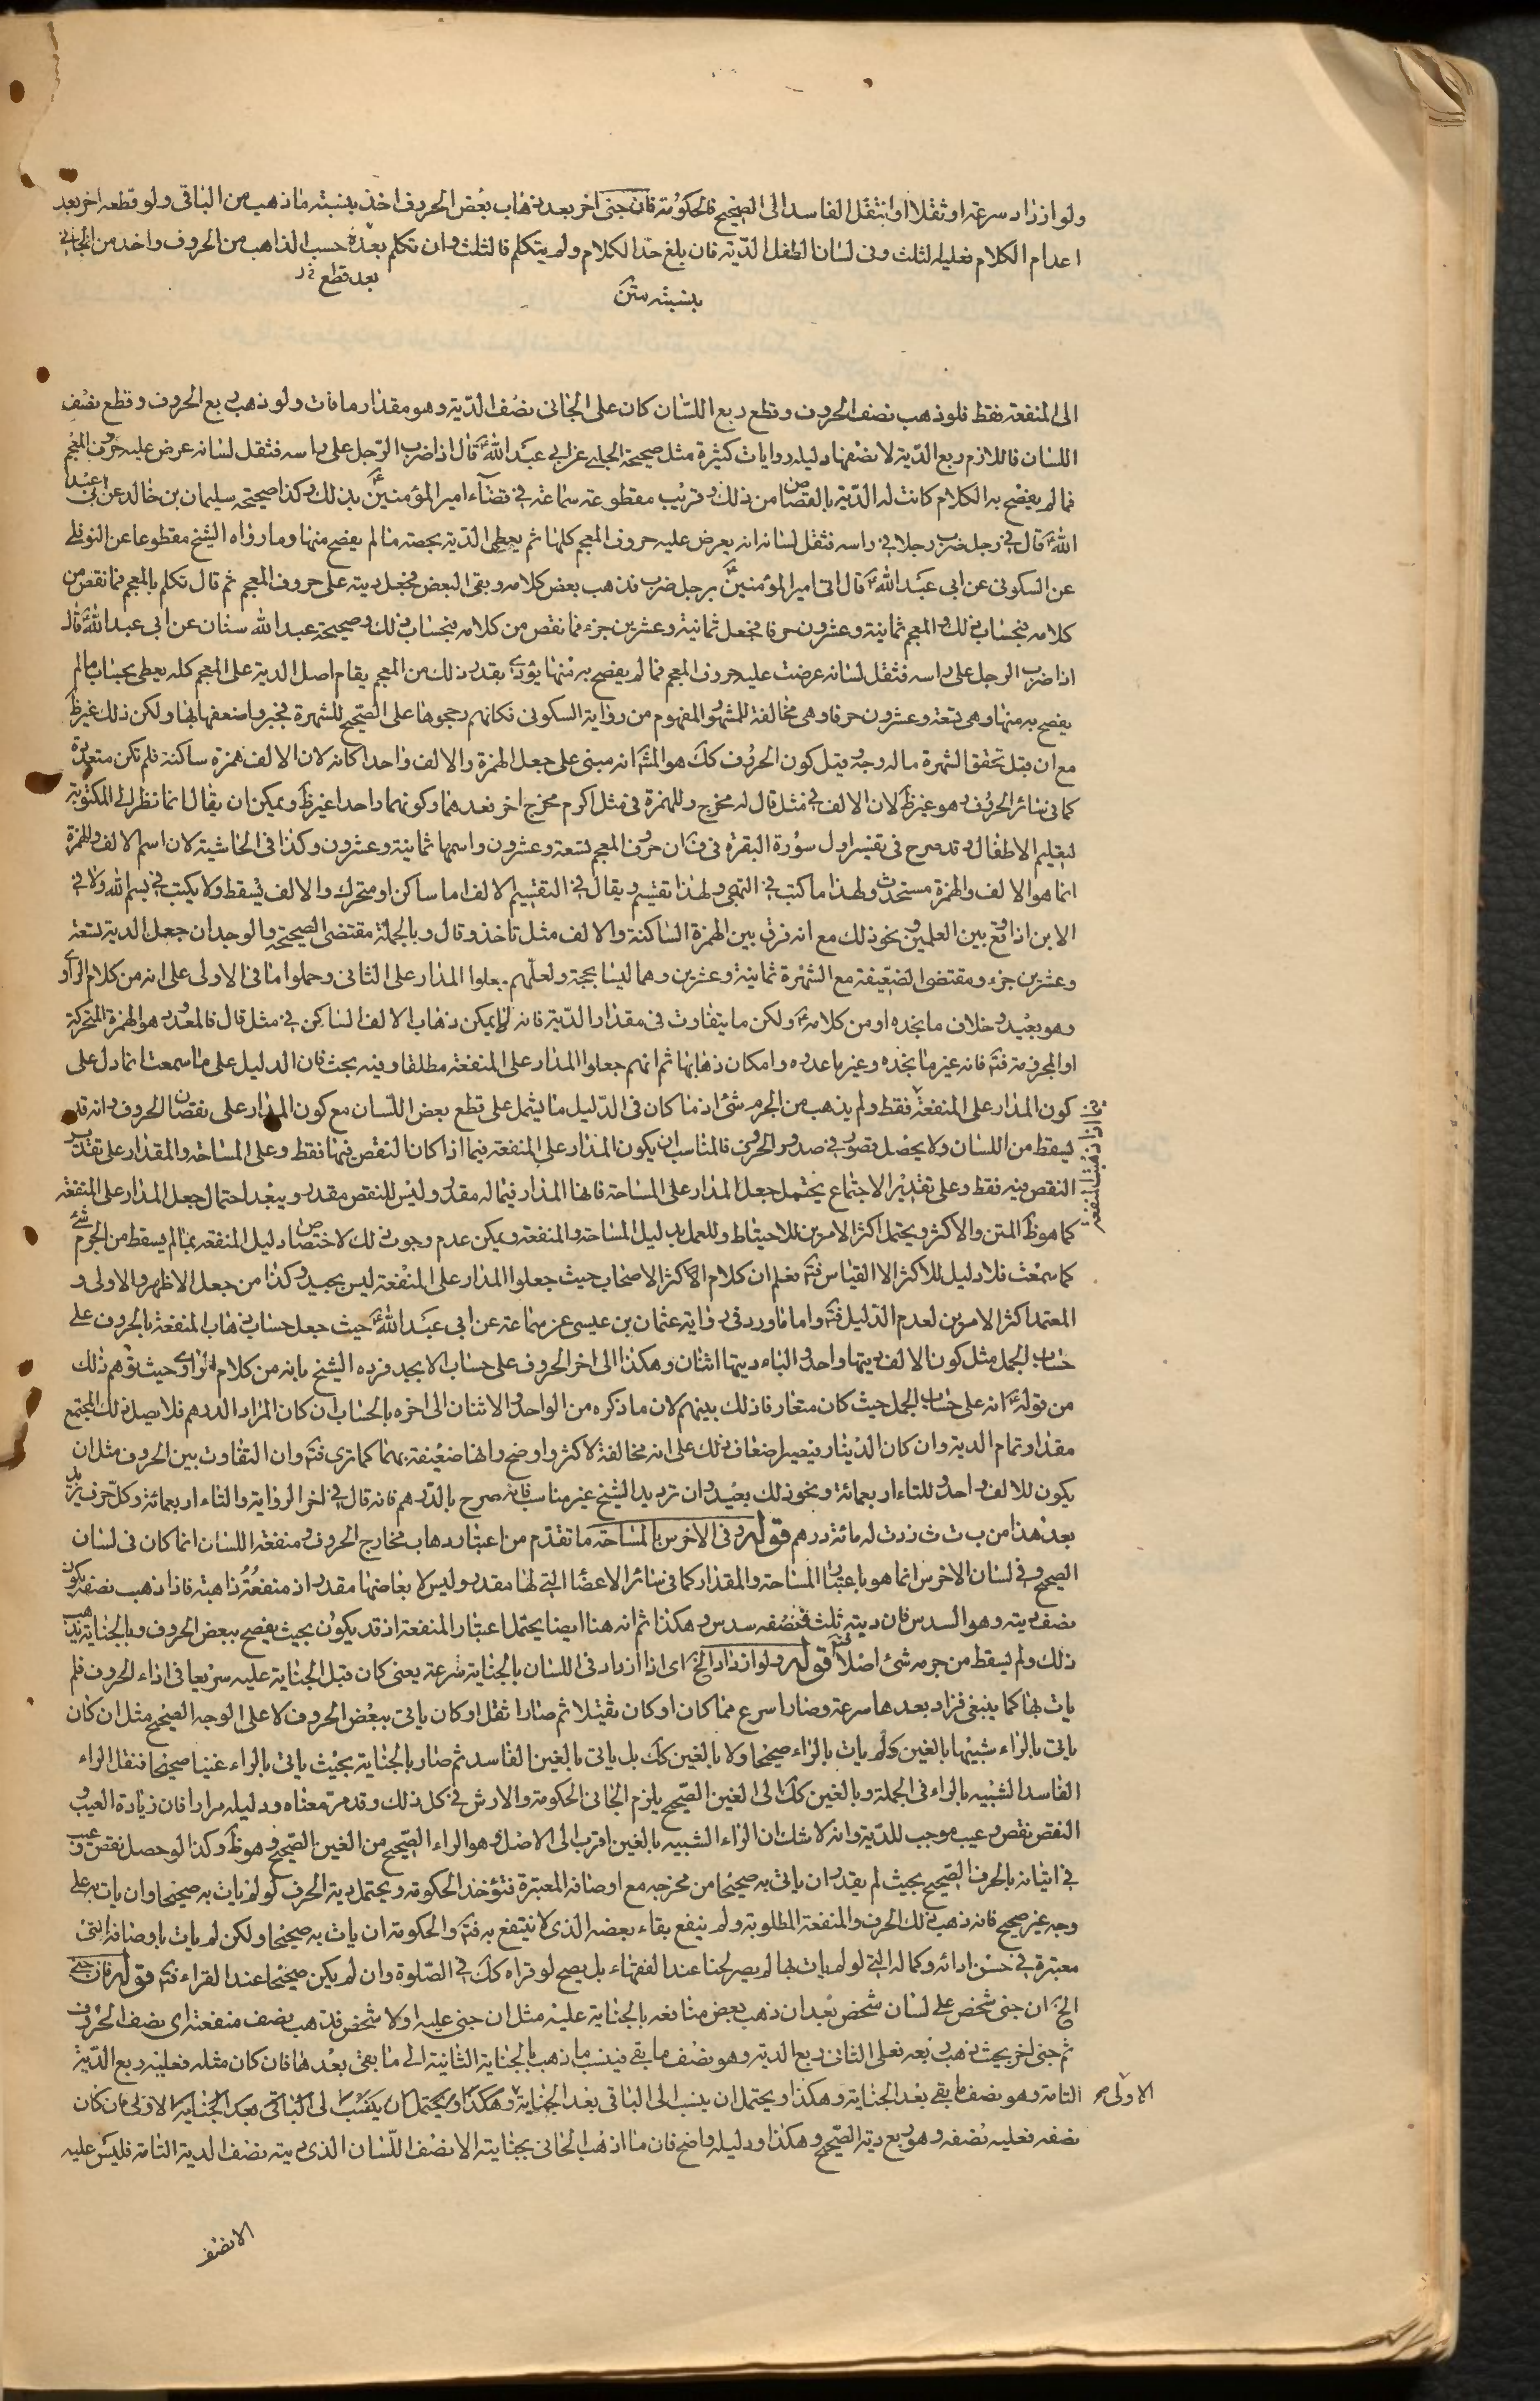 ولو ازداد سرعة او ثقلا او انتقل الفاسد الى الصحيح فالحكومة فان جنى اخر بعد ذهاب بعض الحروف اخذ بنسبة ما ذهب من الباقى ولو قطعه اخر بعد
اعدام الكلام فعليه الثلث وفى لسان الطفل الدّية فان بلغ حدّ الكلام ولم يتكلم فالثلث وان تكلم بعده حسب الذاهب من الحروف واخذ من الجانى
بعد قطع
بنسبته متن
الى المنفعة فقط فلو ذهب نصف الحروف وقطع ربع اللسّان كان على الجانى نصف الدّية وهو مقدار ما فات ولو ذهب ربع الحروف وقطع نصف
اللسان فاللازم ربع الدّية لا نصفها دليله روايات كثيرة مثل صحيحة الحلبى عن ابى عبد الله ع قال اذا ضرب الرّجل على راسه فثقل لسانه عرض عليه حروف المعجم
فما لم يفصح به الكلام كانت له الدّية بالقصاص من ذلك وقريب مقطوعة سماعة فى قضاء امير المؤمنين ع بذلك وكذا صحيحة سليمان بن خالد عن ابى عبد
الله ع قال فى رجل ضرب رجلا فى راسه فثقل لسانه انه يعرض عليه حروف المعجم كلها ثم يعطى الدّية بحصة ما لم يفصح منها وما رواه الشيخ مقطوعا عن النوفلى
عن السكونى عن ابى عبد الله ع قال اتى امير المؤمنين ع برجل ضرب فذهب بعض كلامه وبقى البعض فجعل ديته على حروف المعجم ثم قال تكلم بالمعجم فما نقص من
كلامه فبحساب ذلك والمعجم ثمانية وعشرون حرفا فجعل ثمانية وعشرين جزء فما نقص من كلامه فبحساب ذلك وصحيحة عبد الله سنان عن ابى عبد الله ع قال
اذا ضرب الرجل على راسه فثقل لسانه عرضت عليه حروف المعجم فما لم يفصح به منها يؤدى بقدر ذلك من المعجم يقام اصل الدية على المعجم كله يعطى بحساب ما لم
يفصح به منها وهى تسعة وعشرون حرفا وهى مخالفة للمشهور المفهوم من رواية السكونى فكانهم رجحوها على الصّحيح للشهرة فجبروا ضعفها بها ولكن ذلك غير ظ
مع ان قبل تحقق الشهرة ما له وجه قيل كون الحروف كك هو المش انه مبنى على جعل الهمزة والالف واحدا كانه لان الالف همزة ساكنة فلم تكن متعددة
كما فى سائر الحروف وهو غير ظ لان الالف فى مثل قال له مخرج وللهمزة فى مثل اكرم مخرج اخر فعدهما وكونهما واحدا غير ظ ويمكن ان يقال انما نظر الى المكتوبة
لتعليم الاطفال وقد صرح فى تفسير اول سورة البقرة فى ق ان حروف المعجم تسعة وعشرون واسمها ثمانية وعشرون وكذا فى الحاشية لان اسم الالف والهمزة
انما هو الالف والهمزة مستحدث ولهذا ما كتب فى التهجى ولهذا تقسم ويقال فى التقسيم الالف اما ساكن او متحرك والالف تسقط ولا يكتب فى بسم الله ولا فى
الابن اذا وقع بين العلمين ونحو ذلك مع انه فرق بين الهمزة الساكنة والالف مثل تاخذ وقال وبالجملة مقتضى الصحيحة والوجدان جعل الدية تسعة
وعشرين جزء ومقتضى الضعيفة مع الشهرة ثمانية وعشرين وهما ليسا بحجة ولعلّهم جعلوا المدار على الثانى وحملوا ما فى الاولى على انه من كلام الراوى
وهو بعيد وخلاف ما نجده او من كلامه ع ولكن ما يتفاوت فى مقدار الدّية فانه لا يمكن ذهاب الالف الساكن فى مثل قال فالمعدود هو الهمزة المتحركة
او المجرمة فت فانه غير ما نجده وغير ما عدوه وامكان ذهابها ثم انهم جعلوا المدار على المنفعة مطلقا وفيه بحث فان الدليل على ما سمعت انما دل على
كون المدار على المنفعة فقط ولم يذهب من الجرم شئ اذ ما كان فى الدّليل ما يشمل على قطع بعض اللسان مع كون المدار على نقصان الحروف وانه قد
يسقط من اللسان ولا يحصل قصور فى صدور الحروف فالمناسب ان يكون المدار على المنفعة فيما اذا كان النقص فيها فقط وعلى المساحة والمقدار على تقدير
النقص فيه فقط وعلى تقدير الاجتماع يحتمل جعل المدار على المساحة فانها المدار فيما له مقدر وليس للنقص مقدر ويبعد احتمال جعل المدار على المنفعة
كما هو ظ المتن والاكثر ويحتمل اكثر الامرين للاحتياط وللعمل بدليل المساحة والمنفعة ويمكن عدم وجوب ذلك لاختصاص دليل المنفعة بما لم يسقط من الجرم شئ
كما سمعت فلا دليل للاكثر الا القياس فت فعلم ان كلام الاكثر الاصحاب حيث جعلوا المدار على المنفعة ليس بجيد وكذا من جعل الاظهر والاولى و
المعتمد اكثر الامرين لعدم الدّليل فت واما ما ورد فى رواية عثمان بن عيسى عن سماعة عن ابى عبد الله ع حيث جعل حساب ذهاب المنفعة بالحروف على
حساب الجمل مثل كون الالف ديتها واحد والباء ديتها اثنان وهكذا الى اخر الحروف على حساب الابجد فرده الشيخ بانه من كلام الراوى حيث توهم ذلك
من قوله ع انه على حساب الجمل حيث كان متعارفا ذلك بينهم لان ما ذكره من الواحد والاثنان الى اخره بالحساب ان كان المراد الدرهم فلا يصل ذلك المجتمع
مقدار تمام الدية وان كان الدّينار فيصير اضعاف ذلك على انه مخالفة لاكثر واوضح وانها ضعيفة بهما كما ترى فت وان التفاوت بين الحروف مثل ان
يكون للالف واحد وللتاء اربعمائة ونحو ذلك بعيد وان ترديد الشيخ غير مناسب فانه صرح بالدّرهم فانه قال فى اخر الرواية والتاء اربعمائة وكل حرف يزيد
بعد هذا من ب ت ث زدت له مائة درهم قوله وفى الاخرس بالمساحة ما تقدّم من اعتبار ذهاب مخارج الحروف ومنفعة اللسان انما كان فى لسان
الصحيح وفى لسان الاخرس انما هو باعتبار المساحة والمقدار كما فى سائر الاعضا التى لها مقدر وليس لابعاضها مقدر اذ منفعته ذاهبة فاذا ذهب نصفه يكون
نصف ديته وهو السدس فان ديته ثلث فنصفه سدس وهكذا ثم انه هنا ايضا يحتمل اعتبار المنفعة اذ قد يكون بحيث يفصح ببعض الحروف وبالجناية يذهب
ذلك ولم يسقط من جرمه شئ اصلا فت قوله ولو ازداد الخ اى اذا ازداد فى اللسان بالجناية سرعة يعنى كان قبل الجناية عليه سريعا فى اداء الحروف فلم
يات بها كما ينبغى فزاد بعدها سرعة وصار اسرع مما كان او كان ثقيلا ثم صار اثقل او كان ياتى ببعض الحروف لا على الوجه الصحيح مثل ان كان
ياتى بالراء شبيها بالغين ولم يات بالراء صحيحا ولا بالغين كك بل ياتى بالغين الفاسد ثم صار بالجناية بحيث ياتى بالراء غينا صحيحا فنقل الراء
الفاسد الشبيه بالراء فى الجملة وبالغين كك الى الغين الصّحيح يلزم الجانى الحكومة والارش فى كل ذلك وقد مر معناه ودليله مرارا فان زيادة العيب و
النقص نقص وعيب موجب للدّية وانه لا شك ان الراء الشبيه بالغين اقرب الى الاصل وهو الراء الصّحيح من الغين الصّحيح وهو ظ وكذا لو حصل نقص وعيب
فى اتيانه بالحرف الصّحيح بحيث لم يقدر ان ياتى به صحيحا من مخرجه مع اوصافه المعتبرة فتؤخذ الحكومة ويحتمل دية الحرف لو لم يات به صحيحا وان يات به على
وجه غير صحيح فانه ذهب ذلك الحرف والمنفعة المطلوبة ولم ينفع بقاء بعضه الذى لا ينتفع به فت والحكومة ان يات به صحيحا ولكن لم يات باوصافه التى
معتبرة فى حسن ادائه وكماله التى لو لم يات بها لم يصر لحنا عند الفقهاء بل يصح لو قراه كك فى الصّلوة وان لم يكن صحيحا عند القراء فت قوله فان جنى
الخ ان جنى شخص على لسان شخص بعد ان ذهب بعض منافعه بالجناية عليه مثل ان جنى عليه اولا شخص فذهب نصف منفعته اى نصف الحروف
ثم جنى اخر بحيث ذهب ربعه فعلى الثانى ربع الدية وهو نصف ما بقى فينسب ما ذهب بالجناية الثانية الى ما بقى بعدها فان كان مثله فعليه ربع الدّية
التامة وهو نصف ما بقى بعد الجناية وهكذا ويحتمل ان ينسب الى الباقى بعد الجناية وهكذا ويحتمل ان ينسب الى الباقى بعد الجناية الاولى فان كان
نصفه فعليه نصفه وهو ربع دية الصّحيح وهكذا ودليله واضح فان ما اذهب الجانى بجنايته الا نصف اللّسان الذى ديته نصف الدية التامة فليس عليه
الاولى صح
فيما اذا ذهبت المنفعة
الا نصف